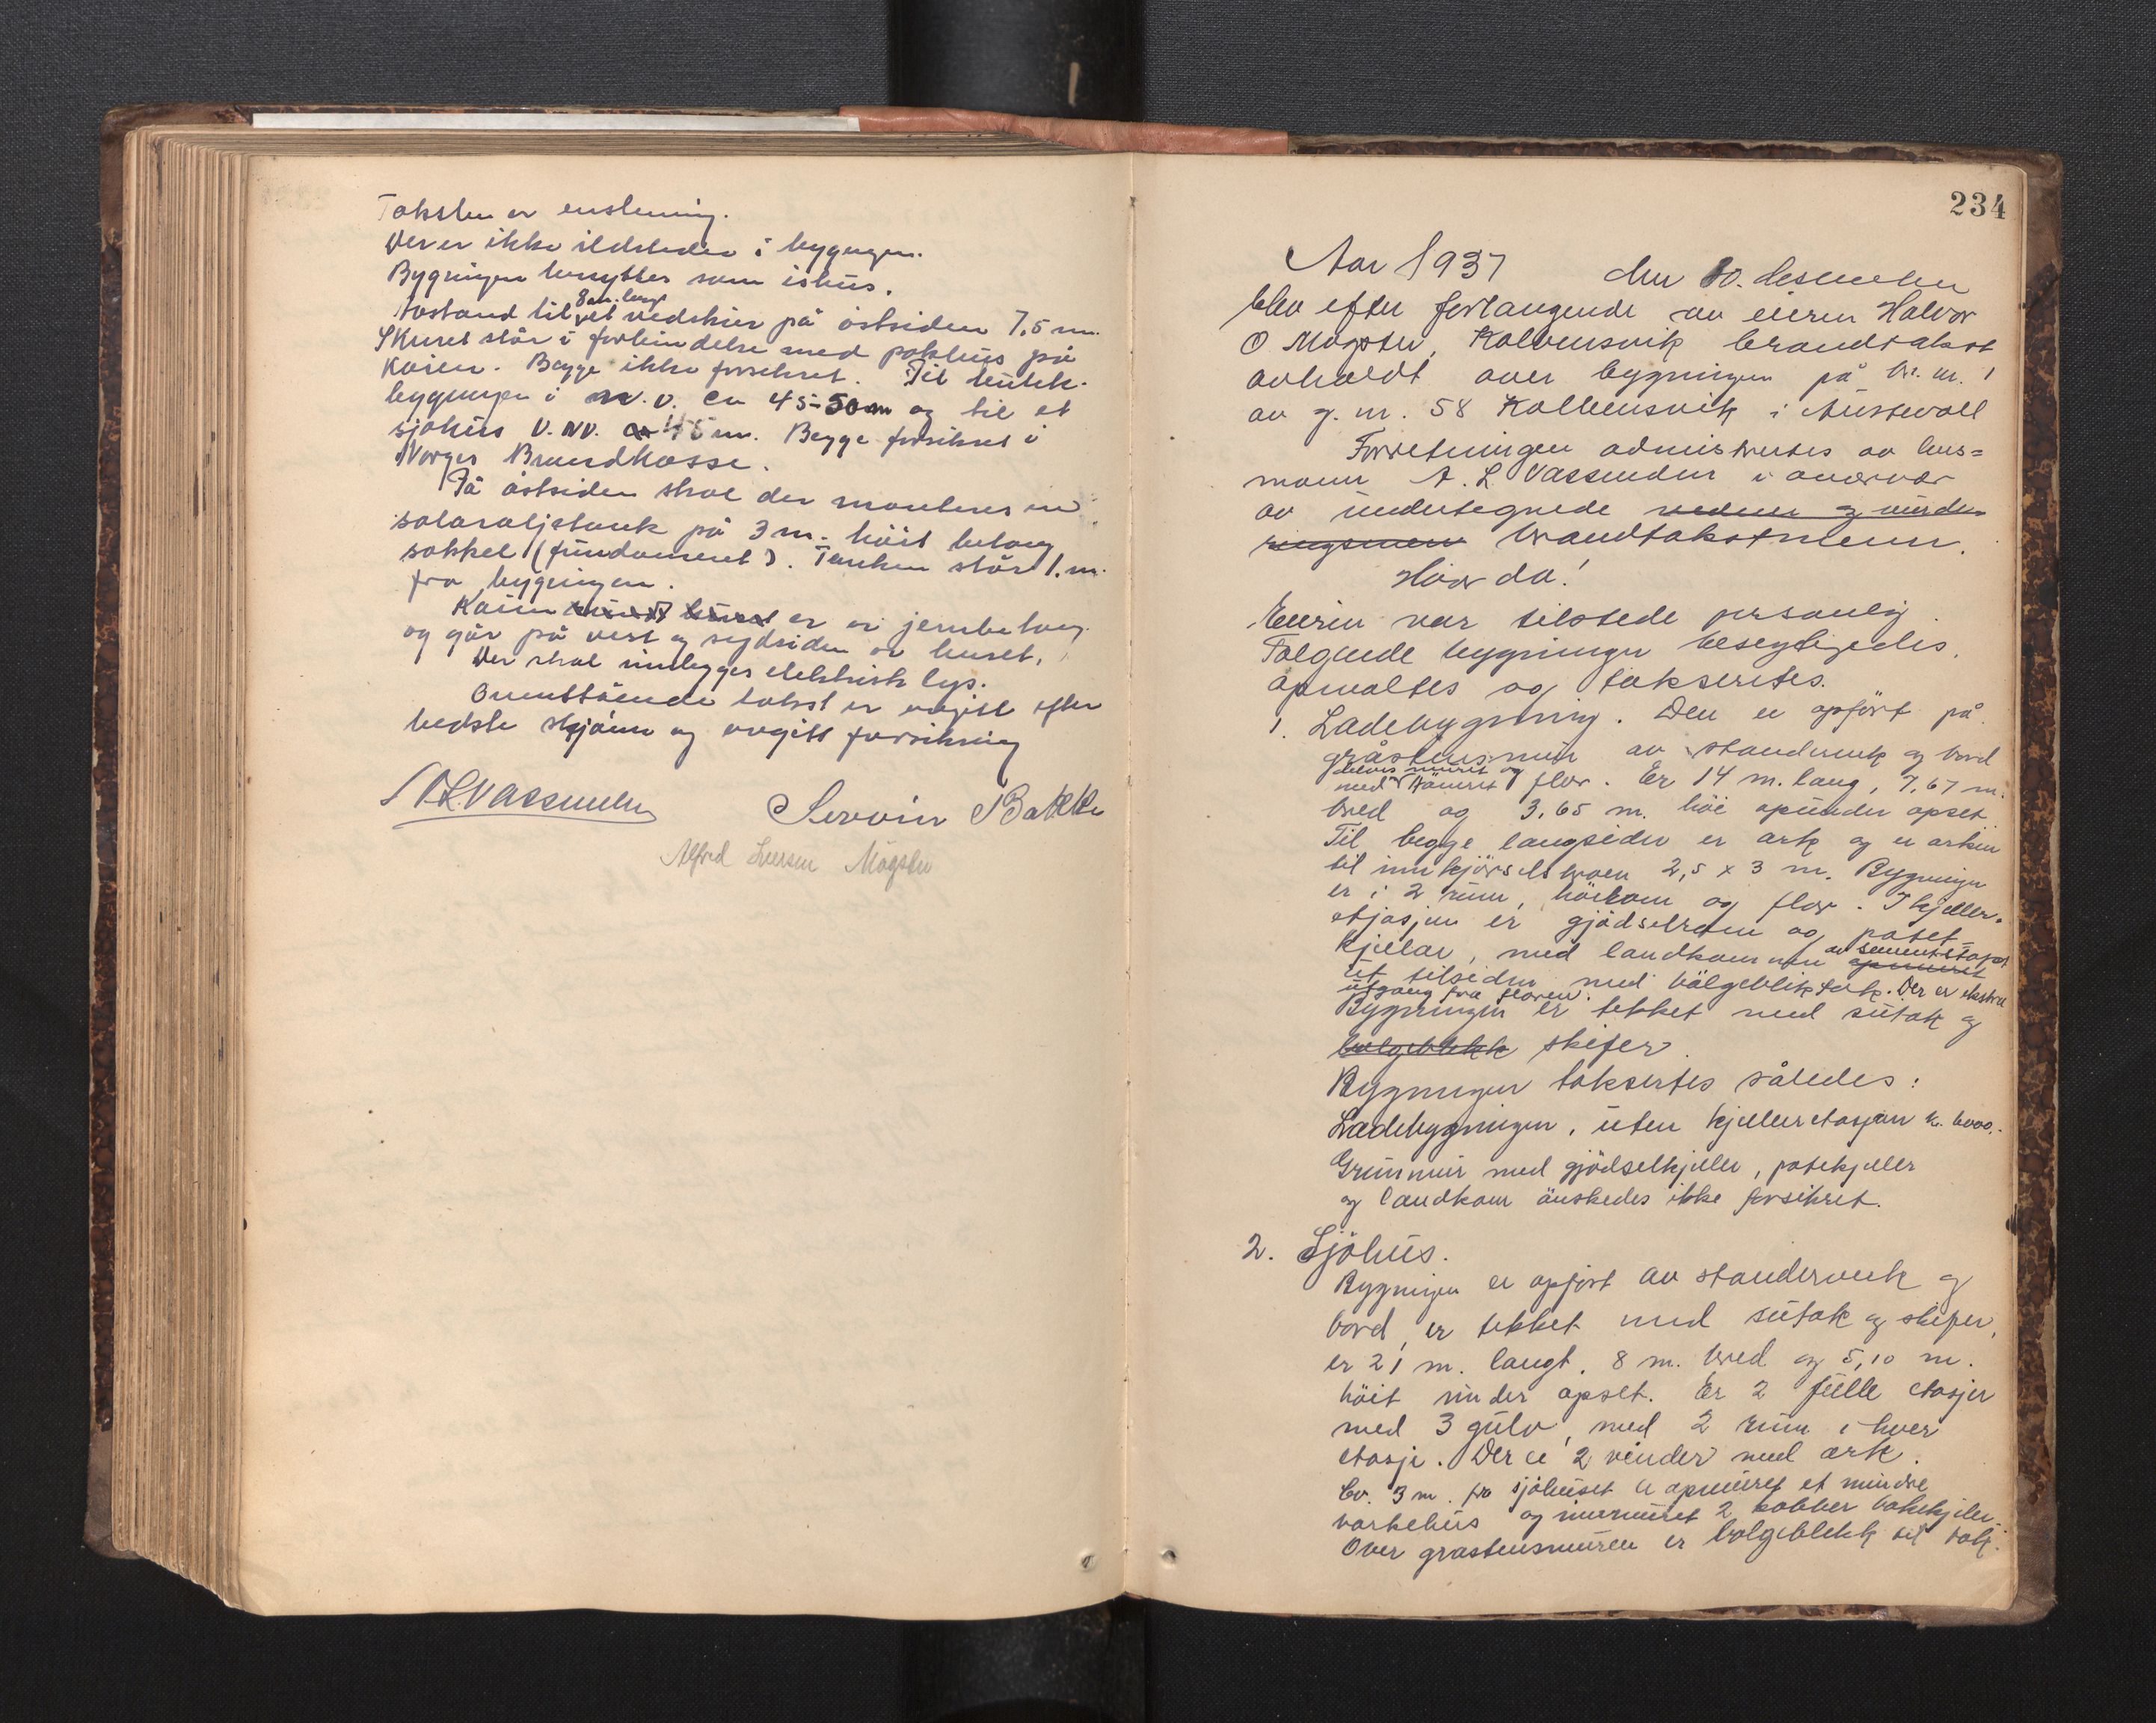 Taksten er enstemmig.
Der er ikke ildsteder i bygningen.
Bygningen benyttes som ishus.
8 m. langt
Avstand til et vedskur på østsiden 7,5 m.
Skuret står i forbindelse med pakhus på
kaien. Begge ikke forsikret. Til butikk-
bygningen i n.v. ca 45-50 m og til et
sjøhus v.nv. ca 45 m. Begge forsikret i
Norges Brandkasse.
På østsiden skal der monteres en
solaroljetank på 3 m. höit betong
sokkel (fundament). Tanken står 1. m.
fra bygningen.
Kaien er av jernbetong
og går på vest og sydsiden av huset.
Der skal innlegges elektrisk lys.
Ovenstående takst er avgitt efter
bedste skjønn og avgitt forsikring
A L Vassenden Servin Bakke
Alfred Iversen Møgster
234
Aar 1937 den 10. desember
blev efter forlangende av eieren Halvor
O Møgster, Kolbensvik brandtakst
avholdt over bygningen på br. nr. 1
av g. nr. 58 Kolbensvik i Austevoll
Forretningen administrertes av lens=
mann A. L Vassenden i overvær
av undertegnede
brandtakstmenn.
Hvor da!
Eieren var tilstede personlig.
Følgende bygninger besegtigedes,
opmaltes og takseretes.
1. Ladebygning. Den er opført på
gråstensmur av standerverk og bord
delvis muret og
med tömret flor. Er 14 m. lang, 7,67 m.
bred og 3,65 m. höi opunder opset
Til begge langsider er ark og er arken
til innkjörselsbroen 2,5 x 3 m. Bygningen
er i 2 rum, höirom og flor. I kjeller-
etasjen er gjödselrom og potet-
kjellar, med landkummen av sementstøpt
ut tilsiden med bölgebliktak. Der er ekstra
utgang fra floren.
Bygningen er tekket med sutak og
bølgeblekk skifer.
Bygningen taksertes således:
Ladebygningen, uten kjelleretasjen kr. 6000.-
Grunnmur med gjödselkjeller, potekjeller
og landkom önskedes ikke forsikret.
2. Sjöhus.
Bygningen er opført av standerverk og
bord, er tekket med sutak og skifer,
er 21 m. langt, 8 m. bred og 5,10 m.
höit under opset. Er 2 fulle etasjer
med 3 gulv, med 2 rum i hver
etasje. Der er 2 vinder med ark.
Ca. 3 m. fra sjöhuset er opmuret et mindre
barkehus og innmuret 2 kobber barkekjeler.
Over grastensmuren er bølgeblekk til tak.